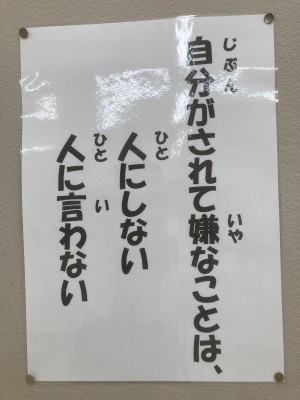 自分がされて嫌なことは、
人にしない
人に言わない
じぶん
いや
ひと
ひと
い